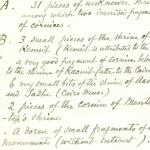 A. 31 pieces of unknown shrines
among which two inscribed fragments
of cornices.
B. 3 small pieces of the shrine of
Kemsit (Kemsit is attributed to the
a very good fragment of cornice belon
to the shrine of Kaouit (after to the Cairo
6 very small bits of the shrines of Aas
and Sadhe (Cairo Mus:)
2 pieces of the cornice of Mentu
-tep's shrine
A dozen of small fragments of
monuments (without interest).